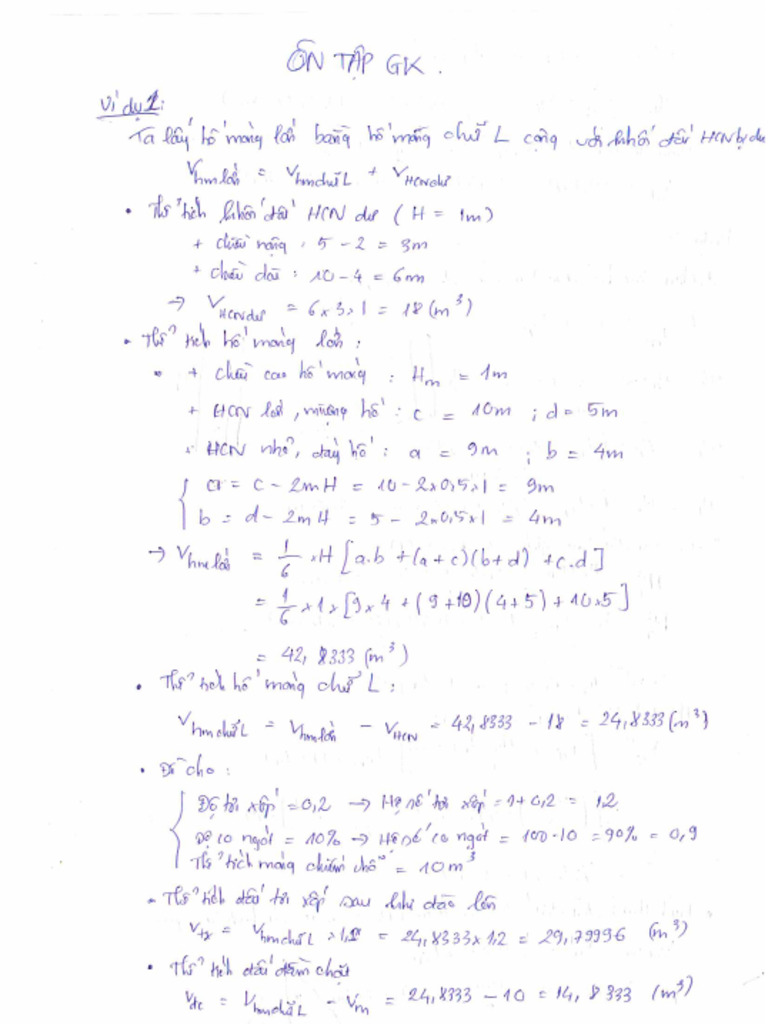 ÔN TẬP GK.
Ví dụ 1:
Ta lấy hố móng lớn bằng hố móng chữ L cộng với khối đất HCN bị dư
Vhm lớn = Vhm chữ L + VHCN dư
• Thể tích khối đất HCN dư ( H = 1m)
+ chiều rộng : 5 - 2 = 3m
+ chiều dài : 10 - 4 = 6m
→ VHCN dư = 6 x 3 x 1 = 18 (m³)
• Thể tích hố móng lớn :
+ chiều cao hố móng : Hm = 1m
+ HCN lớn, miệng hố : c = 10m ; d = 5m
+ HCN nhỏ, đáy hố : a = 9m ; b = 4m
{ a = c - 2mH = 10 - 2x0,5x1 = 9m
b = d - 2mH = 5 - 2x0,5x1 = 4m
→ Vhm lớn = 1/6 x H [a.b + (a + c)(b + d) + c.d]
= 1/6 x 1 x [9 x 4 + (9 + 10)(4 + 5) + 10 x 5]
= 42,8333 (m³)
• Thể tích hố móng chữ L :
Vhm chữ L = Vhm lớn - VHCN = 42,8333 - 18 = 24,8333 (m³)
• Đề cho :
{ Độ tơi xốp = 0,2 → Hệ số tơi xốp = 1 + 0,2 = 1,2
Độ co ngót = 10% → Hệ số co ngót = 100 - 10 = 90% = 0,9
Thể tích móng chiếm chỗ = 10m³
- Thể tích đất tơi xốp sau khi đào lên
Vtx = Vhm chữ L x 1,2 = 24,8333 x 1,2 = 29,79996 (m³)
• Thể tích đất đầm chặt
Vđc = Vhm chữ L - Vm = 24,8333 - 10 = 14,8333 (m³)